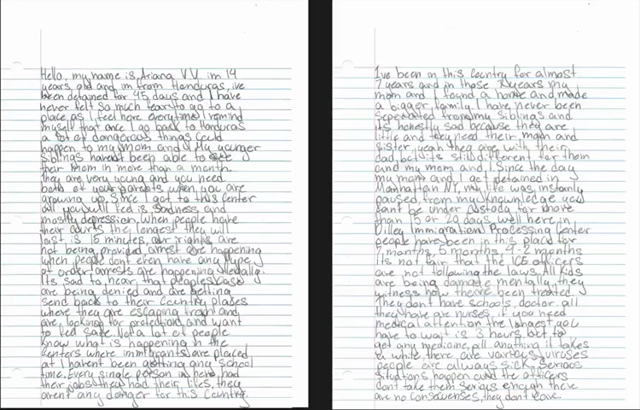 Hello, my name is Ariana V.V im 14
years old and im from Honduras, ive
been detained for 45 days and I have
never felt so much fear to go to a
place as I feel here everytime I remind
myself that once I go back to Honduras
a lot of dangerous things could
happen to my mom and My younger
siblings haven't been able to see
their mom in more than a month.
they are very young and you need
both of your parents when you are
growing up. Since I got to this center
all you will feel is sadness and
mostly depression. When people have
their courts the longest they will
last is 15 minutes, our rights are
not being provided arrest are happening
when people dont even have any type
of order arrests are happening illegally.
Its sad to hear that peoples case
are being denied and are getting
send back to their Country places
where they are escaping from and
are looking for protection and want
to feel safe. Not a lot of people
know what is happening in the
centers where immigrants are placed
at I havent been getting any school
time. Every single person in here had
their jobs they had their lifes, they
arent any danger for this Country.
Ive been in this country for almost
7 years and in those 7 years my
mom and I found a home and made
a bigger family I have never been
seperated from my siblings and
its honestly sad because they are
little and they need their mom and
sister, yeah they are with their
dad, but its still different for them
and my mom and I. Since the day
my mom and I got detained in
Manhattan NY, my life was instantly
paused, from my knowledge you
cant be under custody for more
than 15 or 20 days, well here in
Dilley Immigration Processing Center
people have been in this place for
7 months, 5 months, 1-2 months
its not fair that the ICE officers
are not following the laws. All kids
are being damage mentally, they
witness how theyre been treated.
They dont have schools, doctor, all
they have are nurses, if you need
medical attention the longest you
have to wait is 3 hours, but to
get any medicine, all anything it takes
a while there are various viruses
people are always sick. Serious
situations happen and the officers
dont take them serious enough there
are no consequences, they dont care.